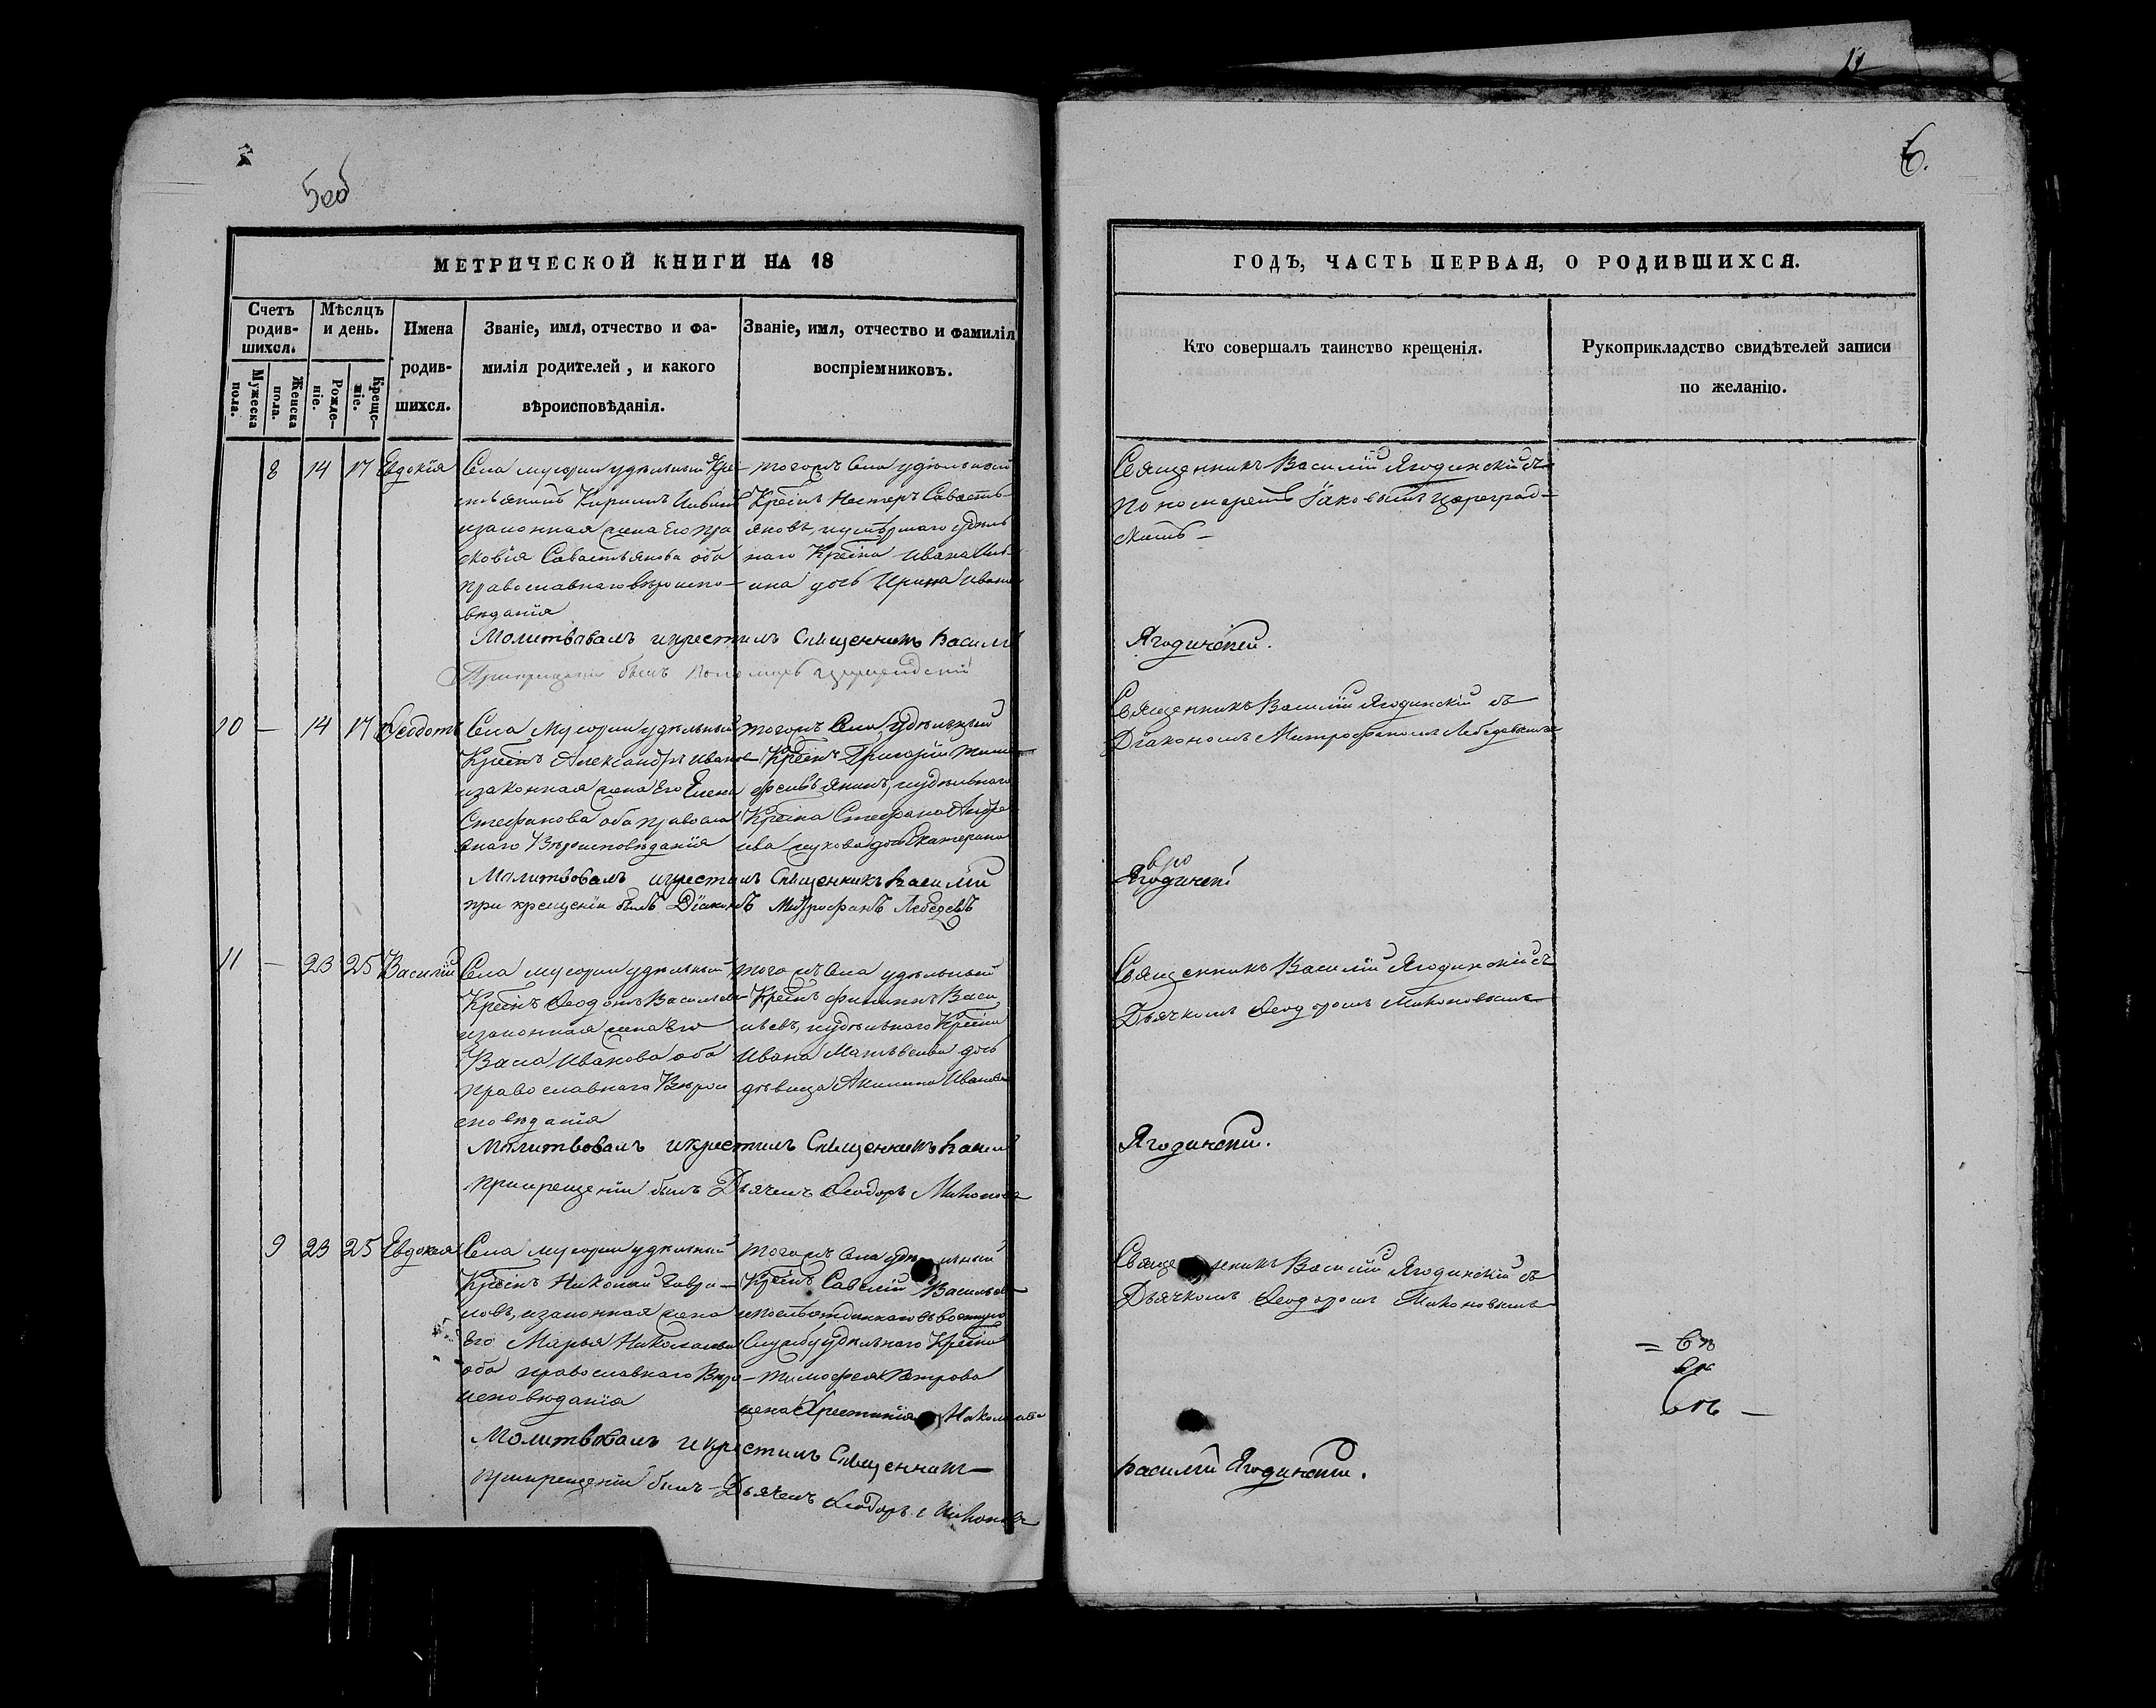 11
6.
5об
МЕТРИЧЕСКОЙ КНИГИ НА 18
Счетъ родив-шихся.
Мѣсяцъ и день.
Мужеска пола.
Женска пола.
Рожде-ніе.
Креще-ніе.
Имена родив-шихся.
Званіе, имя, отчество и фа-
милія родителей, и какого
вѣроисповѣданія.
Званіе, имя, отчество и фамилія
воспріемниковъ.
8 14 17 Евдокія
Села Мусорки удѣльный Кре-
стьянинъ Кирилъ
изаконная жена Его Пра
сковія Савастьянова оба
православнаго вѣроиспо-
вѣданія
тогожъ Села удѣльный
Кресінъ Нестеръ Савасть-
яновъ, иумѣршаго удѣль
наго Кресіна Ивана
ина дочь Ирина Иванова
Молитвовалъ икрестилъ Священникъ Василій
Прикрещеніи былъ Пономарь
10 — 14 17 Ѳеодотъ
Села Мусорки удѣльный
Кресінъ Александръ Иванов
изаконная жена Его Елена
Стефанова оба православ
внаго Вѣроисповѣданія
тогожъ Села удѣльный
Кресінъ Григорій Тимо-
иудѣльнаго
Кресіна Стефана Андре
ева дочь Екатерина
Молитвовалъ икрестилъ Священникъ Василій
при крещеніи былъ Діаконъ Митрофанъ Лебедевъ
11 — 23 25 Василій
Села Мусорки удѣльный
Кресінъ Ѳеодотъ Васильевъ
изаконная жена Его
Васа Иванова оба
православнаго Вѣрои
споведанія
тогожъ Села удѣльный
Кресінъ Филиппъ Васи
льевъ, иудѣльнаго Кресіна
Ивана Матвѣева дочь
дѣвица Акилина Иванова
Молитвовалъ икрестилъ Священникъ Васил
Прикрещеніи былъ Дьячекъ Ѳеодоръ Миконовъ
9 23 25 Евдокея
Села Мусорки удѣльный
Кресінъ Николай Гаври-
ловъ, изаконная жена
Его Марья Николаева
оба православнаго Вѣро
исповѣданія
тогожъ Села удѣльный
Кресінъ Савелій Васильев
въ военную
Службу удѣльнаго Кресіна
Тимофея Петрова
жена Христинія Николаева
Молитвовалъ икрестилъ Священникъ
Прикрещеніи былъ Дьячекъ Ѳеодоръ Миконовъ
ГОДЪ, ЧАСТЬ ПЕРВАЯ, О РОДИВШИХСЯ.
Кто совершалъ таинство крещенія.
Рукоприкладство свидѣтелей записи
по желанію.
Священникъ Василій Ягодинскій съ
Пономаремъ Іаковымъ Цареград-
скимъ —
Ягодинскій.
Священникъ Василій Ягодинскій съ
Діакономъ Митрофаномъ Лебедевымъ
Ягодинскі
Священникъ Василій Ягодинскій съ
Дьячкомъ Ѳеодоромъ Миконовымъ
Ягодинскій.
Священникъ Василій Ягодинскій съ
Дьячкомъ Ѳеодоромъ Миконовымъ
Василій Ягодинскій.